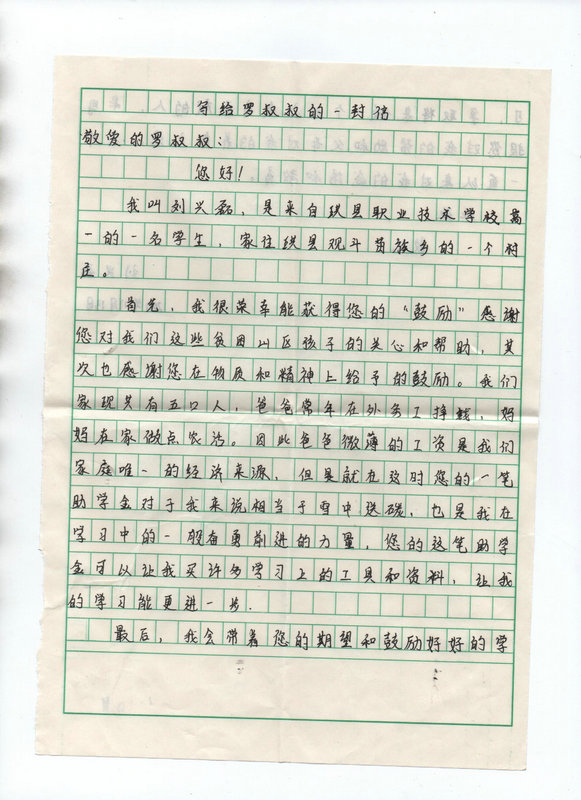 写给罗叔叔的一封信
敬爱的罗叔叔:
您好!
我叫刘兴磊,是来自珙县职业技术学校高
一的一名学生,家住珙县观斗苗族乡的一个村
庄。
首先,我很荣幸能获得您的“鼓励”感谢
您对我们这些贫困山区孩子的关心和帮助,其
次也感谢您在物质和精神上给予的鼓励。我们
家现共有五口人,爸爸常年在外务工挣钱,妈
妈在家做点农活。因此爸爸微薄的工资是我们
家庭唯一的经济来源,但是就在这时您的一笔
助学金对于我来说相当于雪中送碳,也是我在
学习中的一股奋勇前进的力量,您的这笔助学
金可以让我买许多学习上的工具和资料,让我
的学习能更进一步.
最后,我会带着您的期望和鼓励好好的学